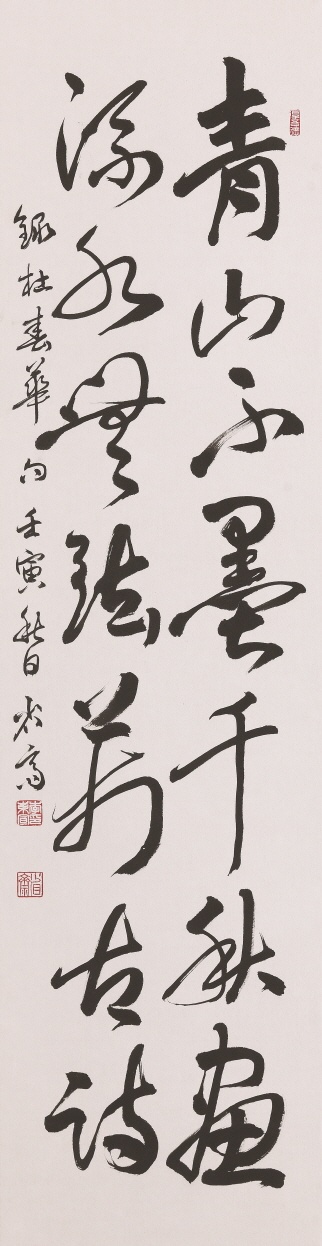 青山不墨千秋畫
流水無絃萬古詩
錄杜春華句 壬寅秋日